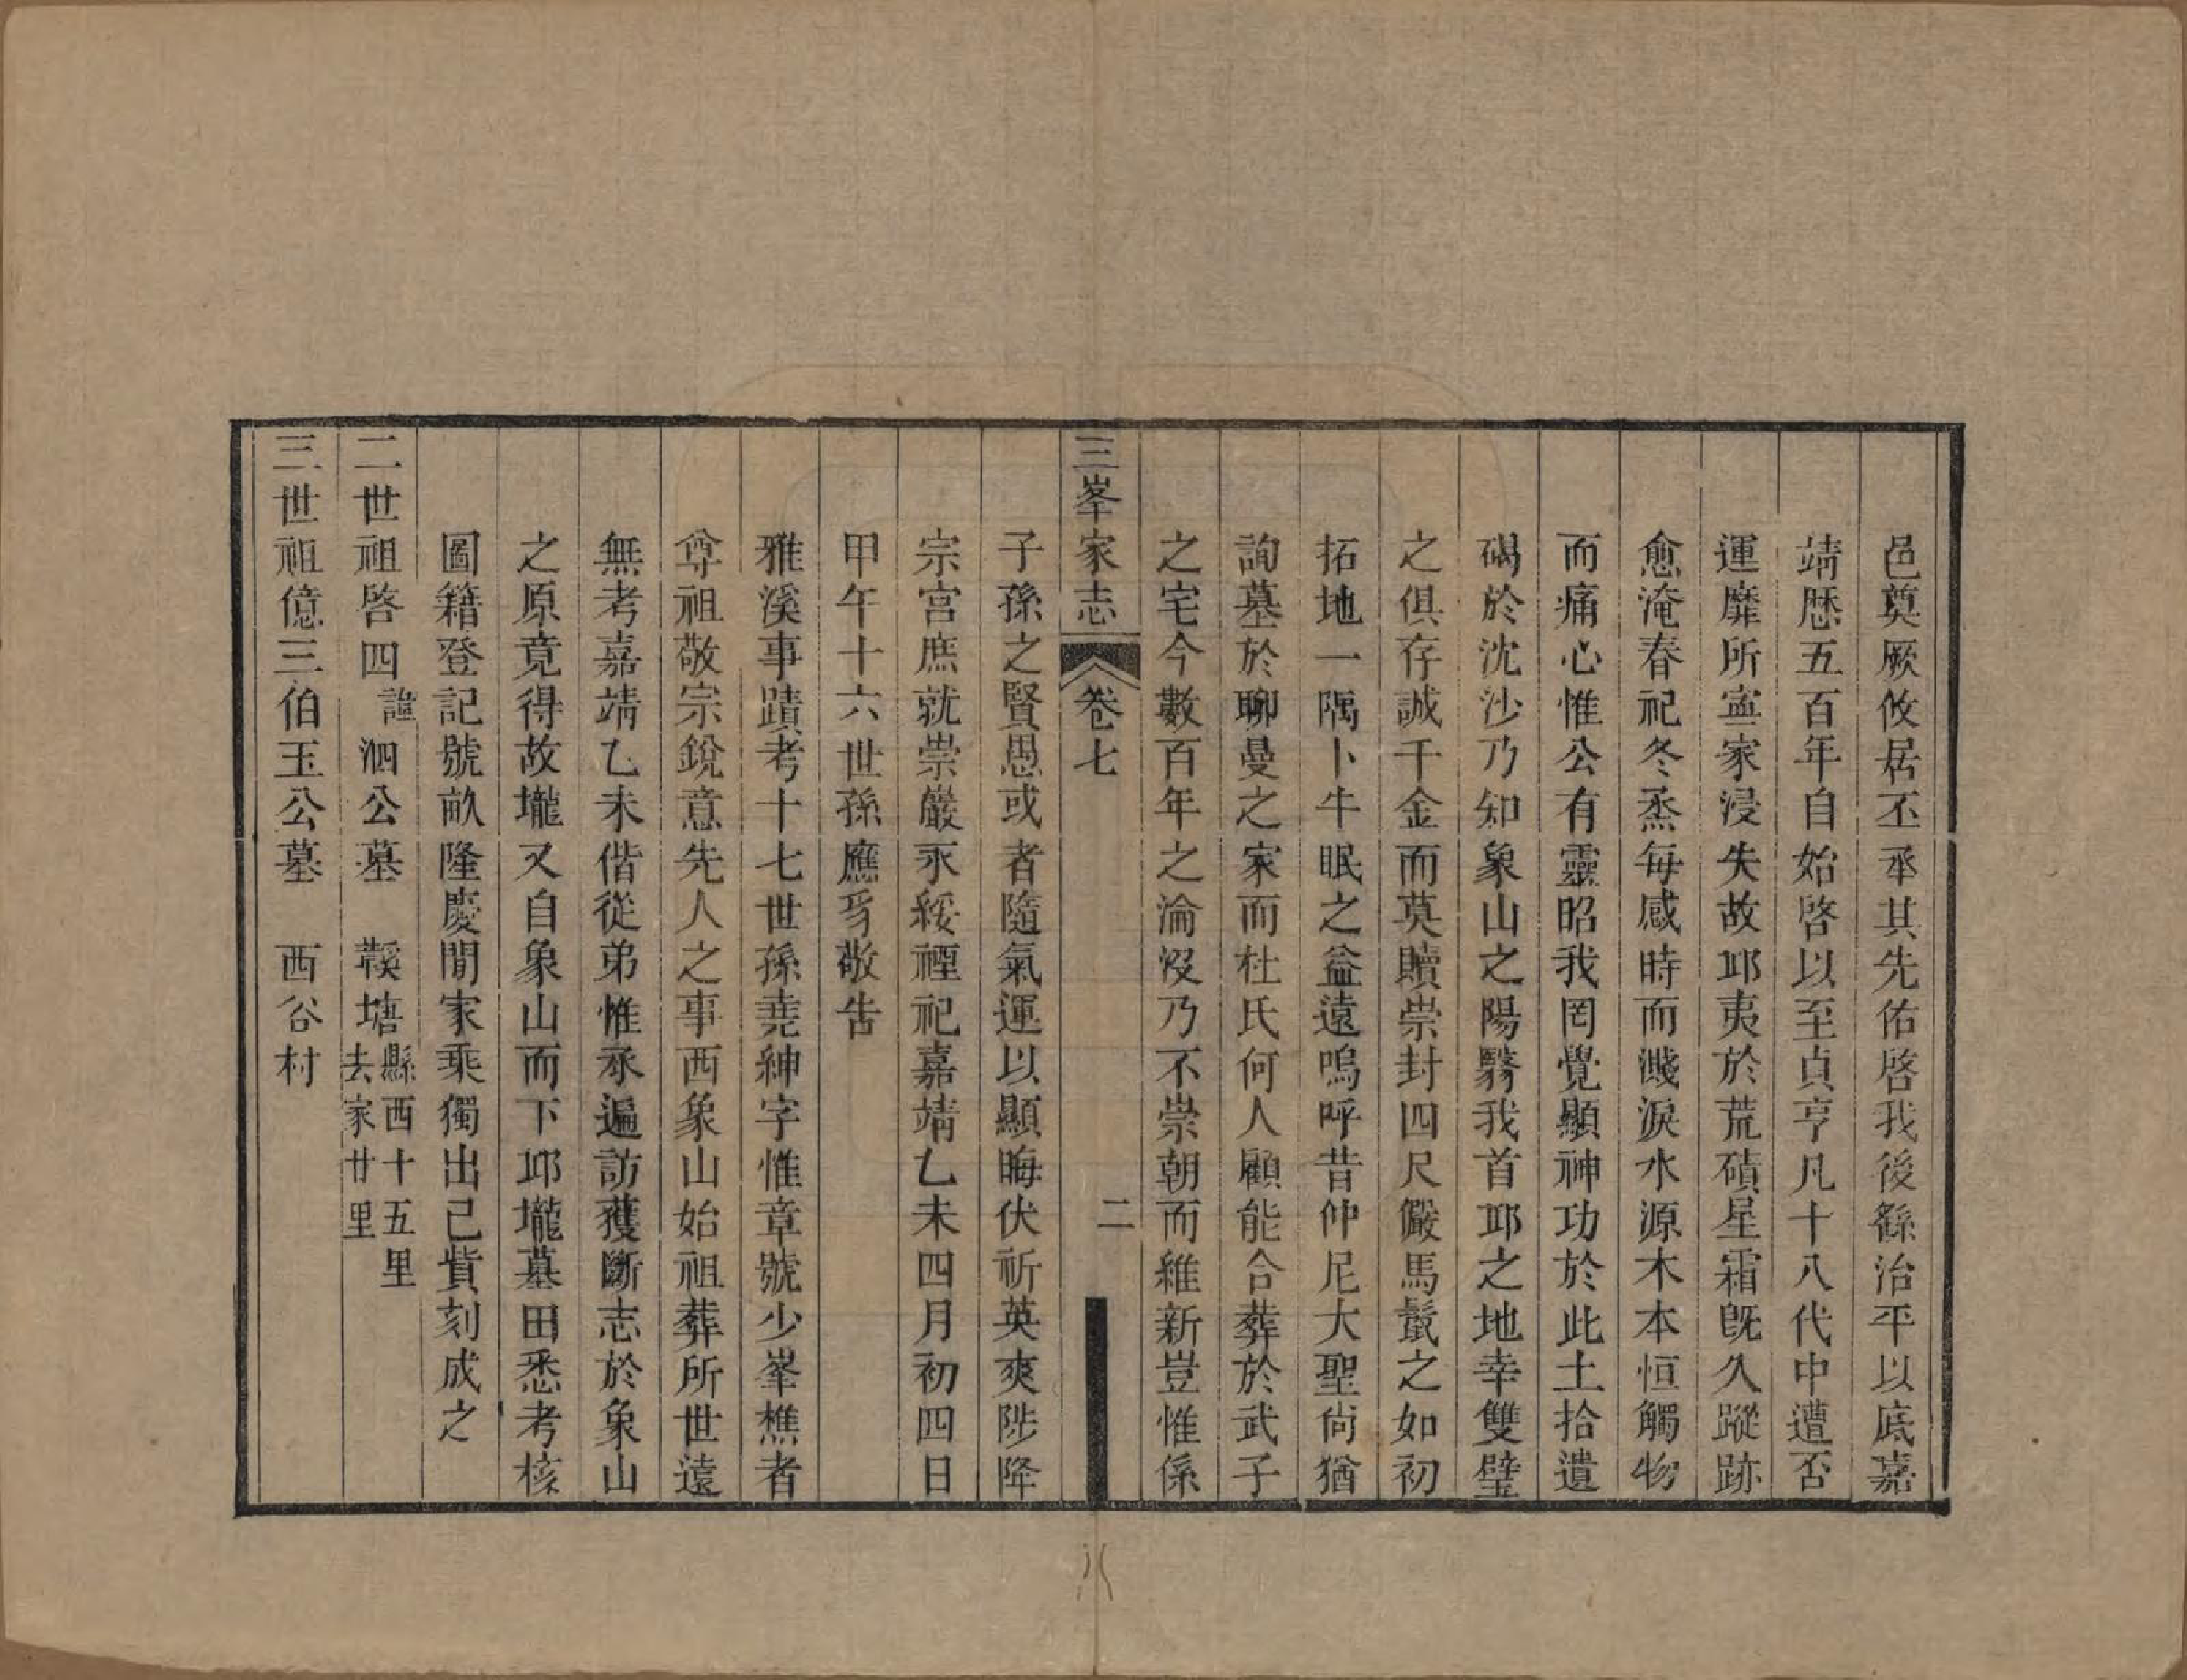 邑奠厥攸居丕承其先佑啓我後繇治平以底嘉
靖歷五百年自始啓以至貞亨凡十八代中遭否
運靡所寍家浸失故邱夷於荒磧星霜旣久蹤跡
愈淹春祀冬烝每感時而濺淚水源木本恒觸物
而痛心惟公有靈昭我罔覺顯神功於此土拾遺
碣於沈沙乃知象山之陽翳我首邱之地幸雙璧
之俱存誠千金而莫贖崇封四尺儼馬鬛之如初
拓地一隅卜牛眠之益遠嗚呼昔仲尼大聖尙猶
詢墓於聊曼之家而杜氏何人顧能合葬於武子
之宅今數百年之淪沒乃不崇朝而維新豈惟係
三峯家志 卷七 二
子孫之賢愚或者隨氣運以顯晦伏祈英爽陟降
宗宮庶就崇嚴永綏禋祀嘉靖乙未四月初四日
甲午十六世孫應豸敬吿
雅溪事蹟考十七世孫堯紳字惟章號少峯樵者
尊祖敬宗銳意先人之事西象山始祖葬所世遠
無考嘉靖乙未偕從弟惟承遍訪獲斷志於象山
之原竟得故壠又自象山而下邱壠墓田悉考核
圖籍登記號畝隆慶閒家乘獨出己貲刻成之
二世祖啓四諱泗公墓 䕘塘縣西十五里去家廿里
三世祖億三伯玉公墓 西谷村